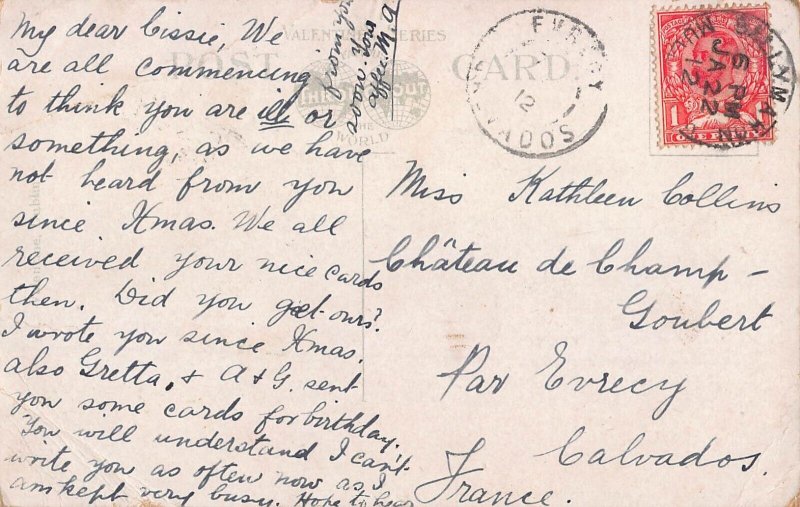 My dear Cissie, We
are all commencing
to think you are ill or
something, as we have
not heard from you
since Xmas. We all
received your nice cards
then. Did you get ours?
I wrote you since Xmas.
also Gretta, & A & G. sent
you some cards for birthday.
You will understand I can't
write you as often now as I
am kept very busy. Hope to hear
from you
soon. with
love
Meffie
VALENTINE'S SERIES
POST CARD.
THE WORLD
EVRECY
12
CALVADOS
BALLYMAHON
6 PM
JA 22
12
1
Miss Kathleen Collins
Château de Champ-
Goubert
Par Evrecy
Calvados.
France.